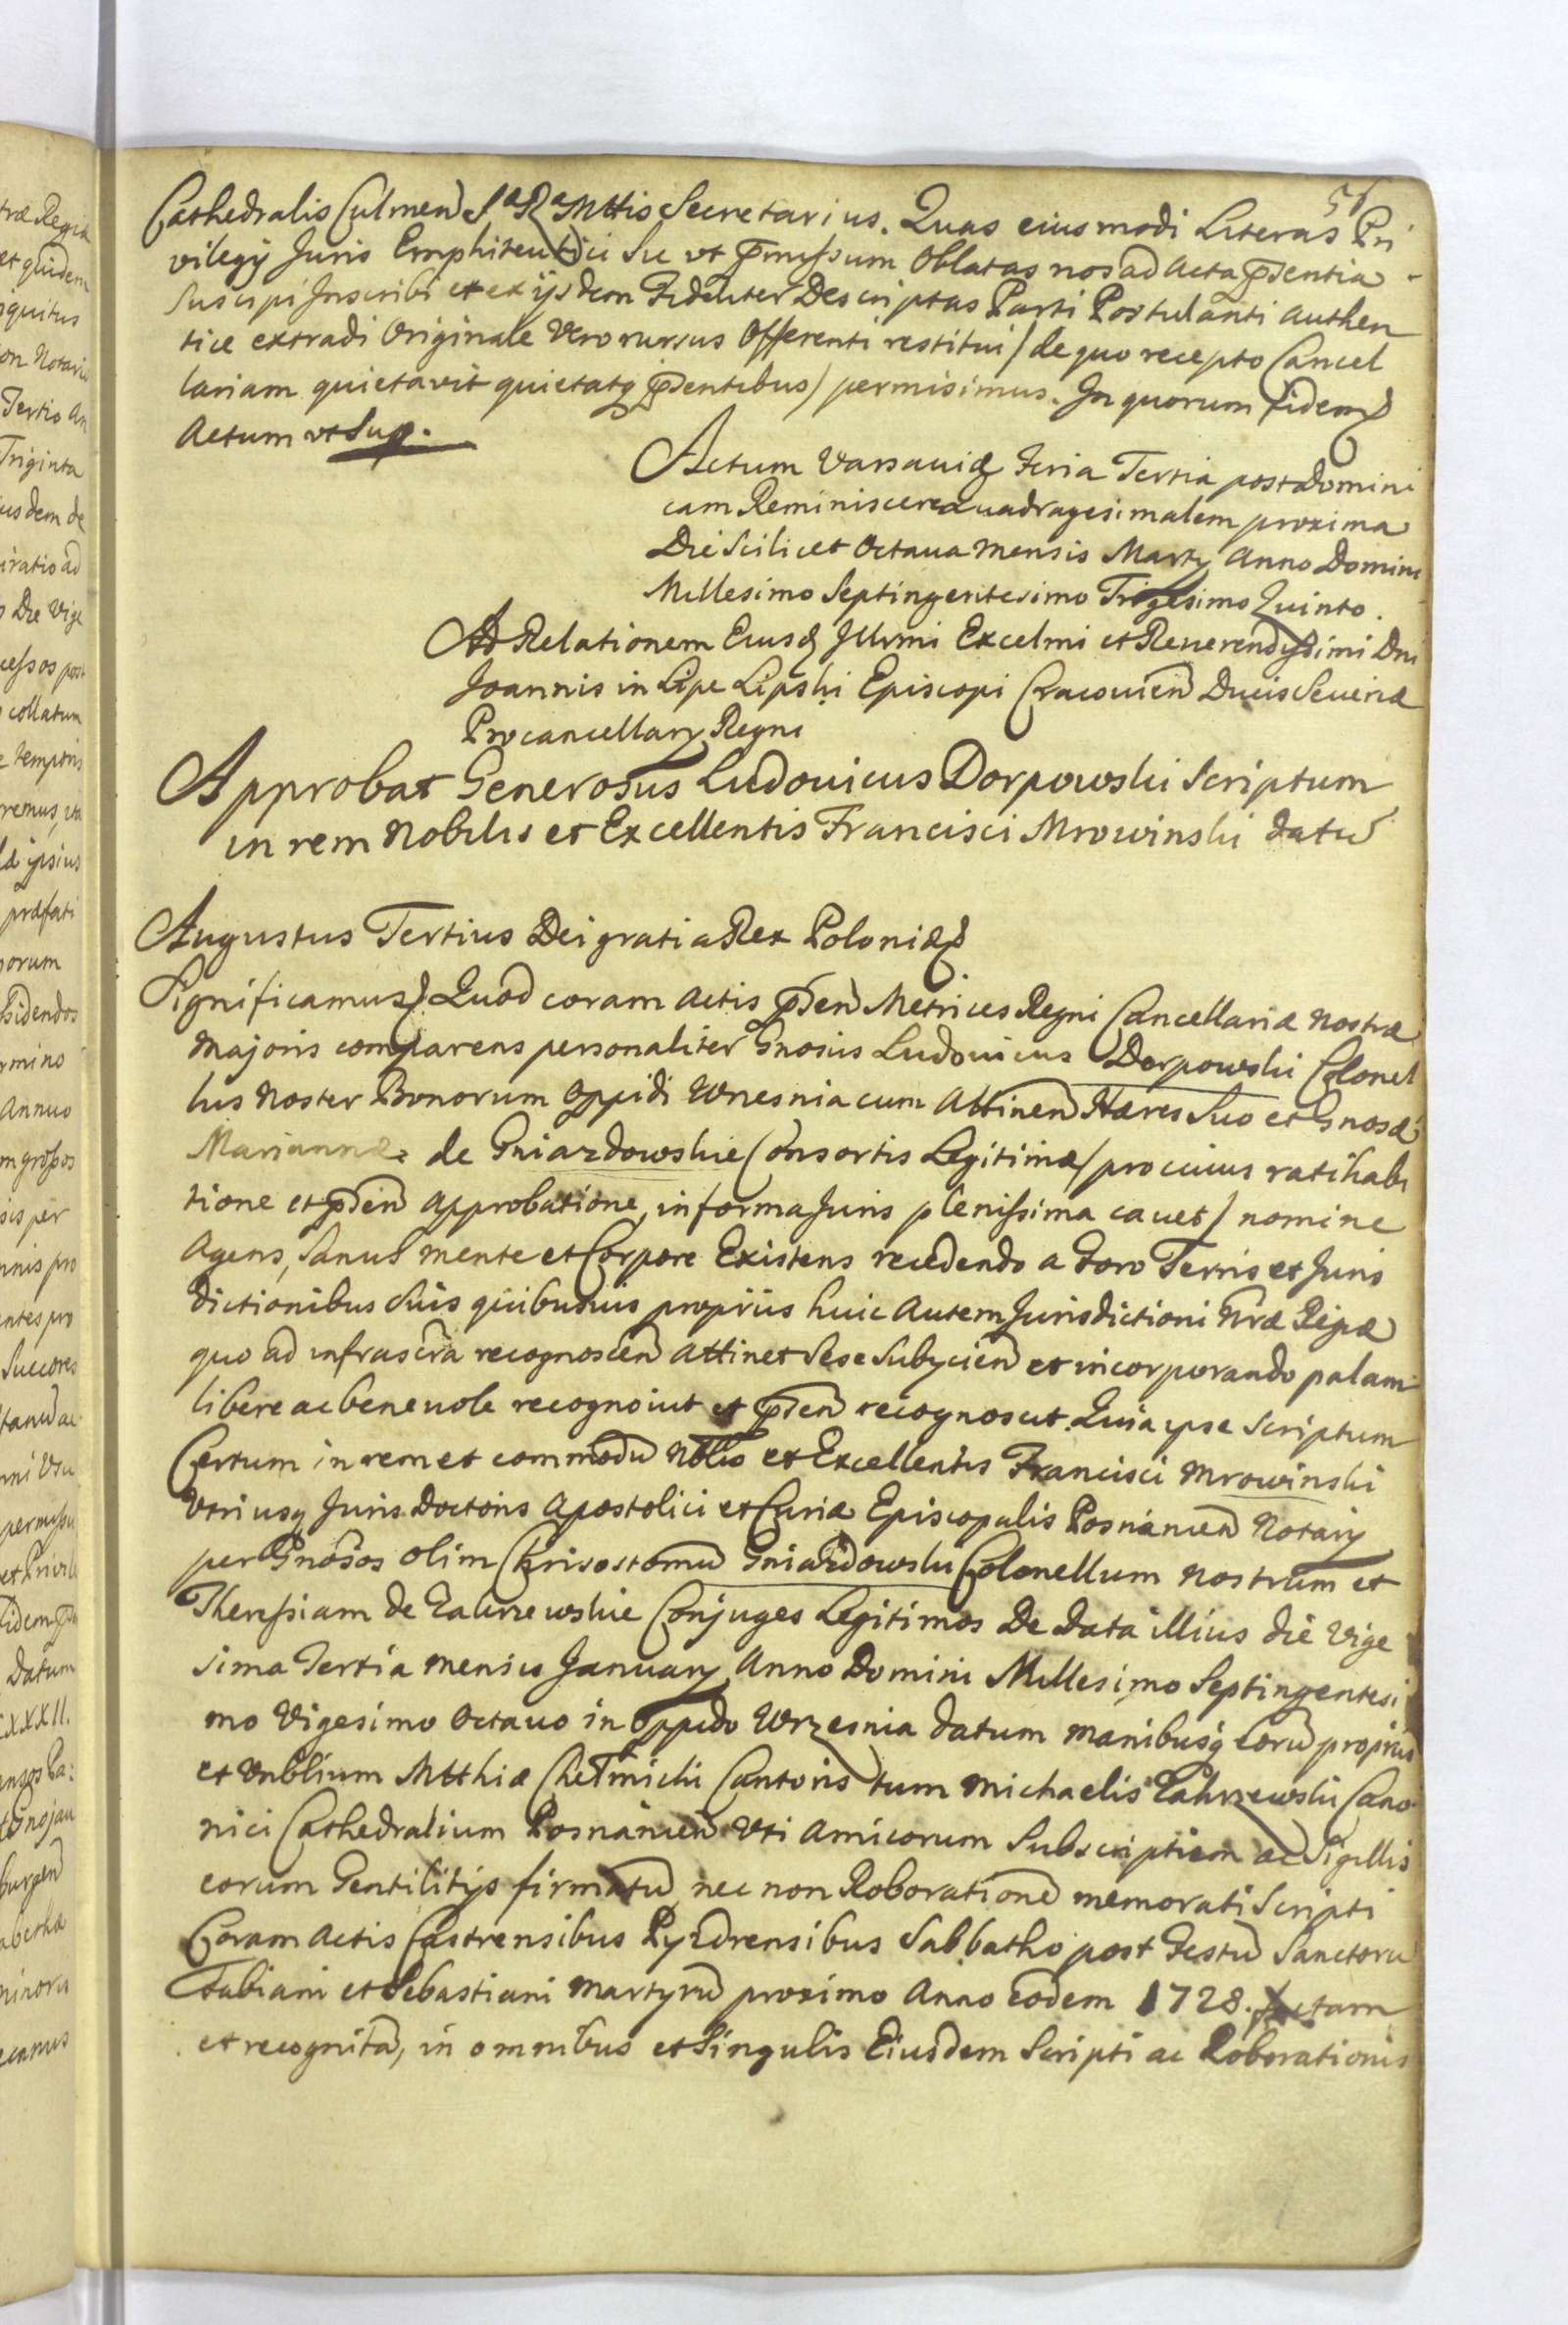 56
Cathedralis Culmen S.ᵃ R.ᵃ Mttis Secretarius. Quas eiusmodi Literas Pri
vilegÿ Juris Emphiteutici Sic vt p̄missum Oblatas nos ad Acta p̄sentia
Suscipi Jnscribi et ex ijsdem Fideliter Descriptas Parti Postulanti Authen
tice extradi Originale Vero rursus Offerenti restitui / de quo recepto Cancel
lariam quietavit quietatq p̄sentibus / permisimus. Jn quorum fidem
Actum vt Sup.
Actum Varsaviæ Feria Tertia post Domini
cam Reminiscere Quadragesimalem proxima
Die Scilicet Octaua Mensis Martÿ Anno Domini
Millesimo Septingentesimo Trigesimo Quinto.
Ad Relationem Eiusd Jllrmi Excelmi et Reuerendissimi Dni
Joannis in Lipe Lipski Episcopi Cracouien Ducis Seueriæ
Procancellarÿ Regni
Approbat Generosus Ludouicus Dorpowski Scriptum
in rem Nobilis et Excellentis Francisci Mrowinski datū
Augustus Tertius Dei gratia Rex Poloniæ
Significamus Quod coram Actis p̄sen Metrices Regni Cancellariæ Nostræ
Majoris comparens personaliter Gnosus Ludouicus Dorpowski Colonel
lus Noster Bonorum Oppidi Wresnia cum Attinen Hæres Suo et Gnosæ
Mariannæ de Gniazdowskie Consortis Legitimæ / pro cuius ratihabi
tione et p̄sen approbatione, in forma Juris plenissima cauet / nomine
Agens, Sanus mente et Corpore Existens recedendo a Foro Terris et Juris
dictionibus Suis quibusuis proprijs huic Autem Jurisdictioni Nræ Regiæ
quo ad infrascra recognoscen attinet Sese Subÿcien et incorporando palam
libere ac beneuole recognouit et p̄sen recognoscit. Quia ipse Scriptum
Certum in rem et commodū Nblis et Excellentis Francisci Mrowinski
Vtriusq Juris Doctoris Apostolici et Curiæ Episcopalis Posnanien Notarÿ
per Gnosos olim Chrisostomū Gniazdowski Colonellum Nostrum et
Theressiam de Zakrzewskie Conjuges Legitimos De Data illius die Vige
sima Tertia mensis Januarÿ Anno Domini Millesimo Septingentesi
mo Vigesimo Octauo in Oppido Wrzesnia datum manibusq eorū proprijs
et Vnblium Mtthiæ Chełmicki Cantoris tum Michaelis Zakrzewski Cano
nici Cathedralium Posnanien Vti Amicorum Subscriptiem ac Sigillis
eorum Gentilitÿs firmatū, nec non Roborationē memorati Scripti
Coram Actis Castrensibus Pyzdrensibus Sabbatho post Festū Sanctorū
Fabiani et Sebastiani Martyrū proximo Anno eodem 1728. factam
et recognitā, in omnibus et Singulis Eiusdem Scripti ac Roborationis